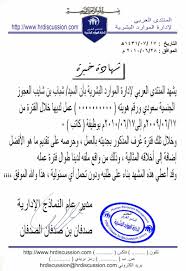 المنتدى العربي
لإدارة الموارد البشرية
http://www.hrdiscussion.com
التاريخ :
الموافق :
شهادة خبرة
يشهد المنتدى العربي لإدارة الموارد البشرية بأن السيد/ شباب بن شايب العجوز
الجنسية سعودي ورقم هويته ( ) عمل لديها خلال الفترة من
٢٠٠٩/٠٢/١٧م وحتى ٢٠١٠/٠٦/١٧م بوظيفة ( كاتب )
وخلال تلك الفترة عرف المذكور بجديته بالعمل ، وحرصه على تقديم ما هو الأفضل
إضافة الى أخلاقه العالية ، وقد كان موظفاً له وقعه لدينا طوال فترة عمله
وقد أعطيت له هذه الشهادة بناء على طلبه ودون تحمل أي مسئولية ، هذا والله الموفق ،،،
مدير عام النماذج الإدارية
صدفان بن صدفان الصدفان
http://www.hrdiscussion.com